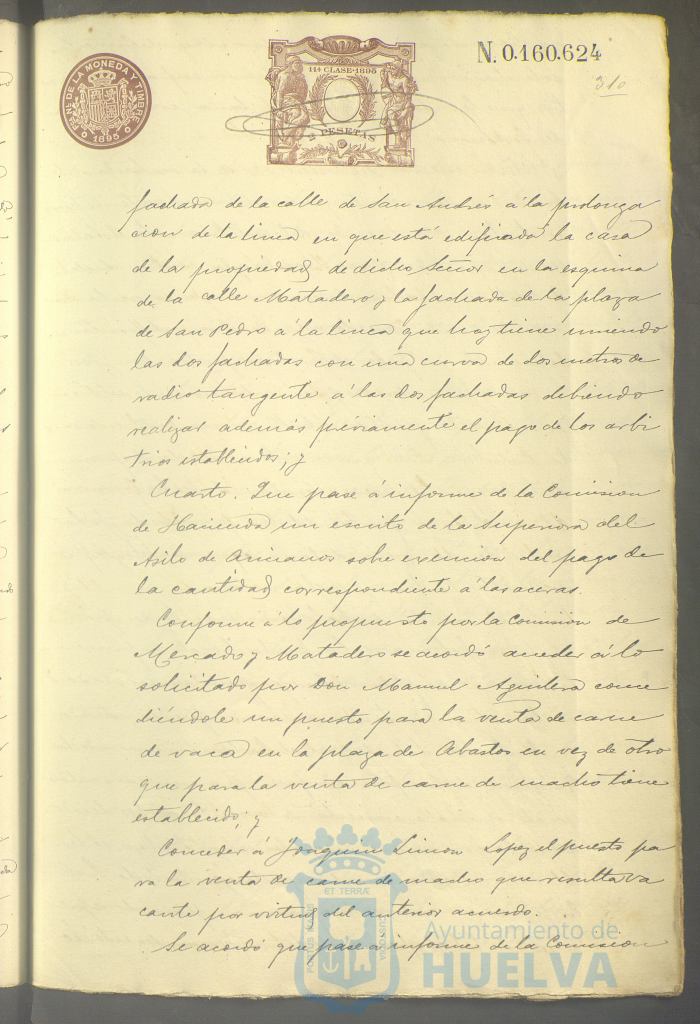 FAB. NAL. DE LA MONEDA Y TIMBRE
1895
11ª CLASE-1895
2 PESETAS
N. 0.160.624
310
fachada de la calle de San Andrés á la prolonga
cion de la linea en que está edificada la casa
de la propiedad de dicho Señor en la esquina
de la calle Matadero y la fachada de la plaza
de San Pedro á la linea que hoy tiene uniendo
las dos fachadas con una curva de dos metros de
radio tangente á las dos fachadas debiendo
realizar además préviamente el pago de los arbi
trios establecidos; y
Cuarto. Que pase á informe de la Comision
de Hacienda un escrito de la Superiora del
Asilo de Ancianos sobre exencion del pago de
la cantidad correspondiente á las aceras.
Conforme á lo propuesto por la Comisión de
Mercado y Matadero se acordó acceder á lo
solicitado por Don Manuel Aguilera conce
diéndole un puesto para la venta de carne
de vaca en la plaza de Abastos en vez de otro
que para la venta de carne de macho tiene
establecido; y
Conceder á Joaquin Limon Lopez el puesto pa
ra la venta de carne de macho que resulta va
cante por virtud del anterior acuerdo.
Se acordó que pase á informe de la Comision
ET TERRÆ
PORTUS MARIS
CUSTODIA
Ayuntamiento de
HUELVA